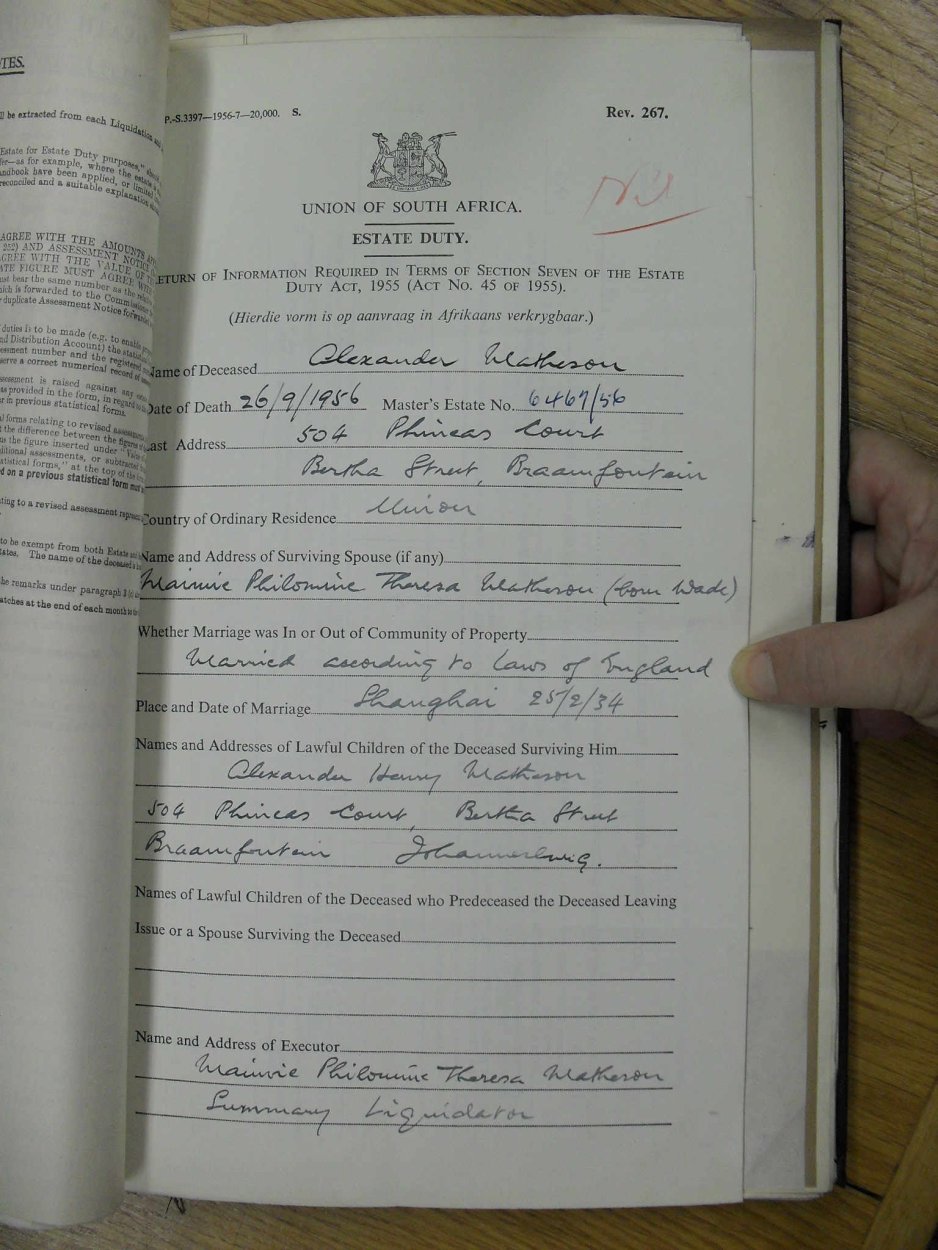 TES.
ll be extracted from each Liquidation and
Estate for Estate Duty purposes,"
fer—as for example, where the estate
andbook have been applied, or limited
reconciled and a suitable explanation
AGREE WITH THE AMOUNTS
252) AND ASSESSMENT NOTICE
GREE WITH THE VALUE OF
ATE FIGURE MUST AGREE WITH
ust bear the same number as the
hich is forwarded to the Commissioner
duplicate Assessment Notice forwarded
duties is to be made (e.g. to enable
nd Distribution Account) the
essment number and the registered
serve a correct numerical record of
ssessment is raised against any
as provided in the form, in regard to
r in previous statistical forms.
al forms relating to revised
t the difference between the figures
us the figure inserted under "Value
ditional assessments, or subtracted
atistical forms," at the top of the
d on a previous statistical form must
ting to a revised assessment
to be exempt from both Estate and
tates. The name of the deceased
he remarks under paragraph
atches at the end of each month to
P.-S.3397—1956-7—20,000. S.
Rev. 267.
Nil
UNION OF SOUTH AFRICA.
ESTATE DUTY.
ETURN OF INFORMATION REQUIRED IN TERMS OF SECTION SEVEN OF THE ESTATE
DUTY ACT, 1955 (ACT NO. 45 OF 1955).
(Hierdie vorm is op aanvraag in Afrikaans verkrygbaar.)
Name of Deceased Alexander Matheson
Date of Death 26/9/1956 Master's Estate No. 6467/56
Last Address 504 Phineas Court
Bertha Street, Braamfontein
Country of Ordinary Residence Union
Name and Address of Surviving Spouse (if any)
Mainie Philomine Theresa Matheson (born Wade)
Whether Marriage was In or Out of Community of Property
Married according to Laws of England
Place and Date of Marriage Shanghai 25/2/34
Names and Addresses of Lawful Children of the Deceased Surviving Him
Alexander Henry Matheson
504 Phineas Court, Bertha Street
Braamfontein Johannesburg.
Names of Lawful Children of the Deceased who Predeceased the Deceased Leaving
Issue or a Spouse Surviving the Deceased
Name and Address of Executor
Mainie Philomine Theresa Matheson
Summary Liquidator